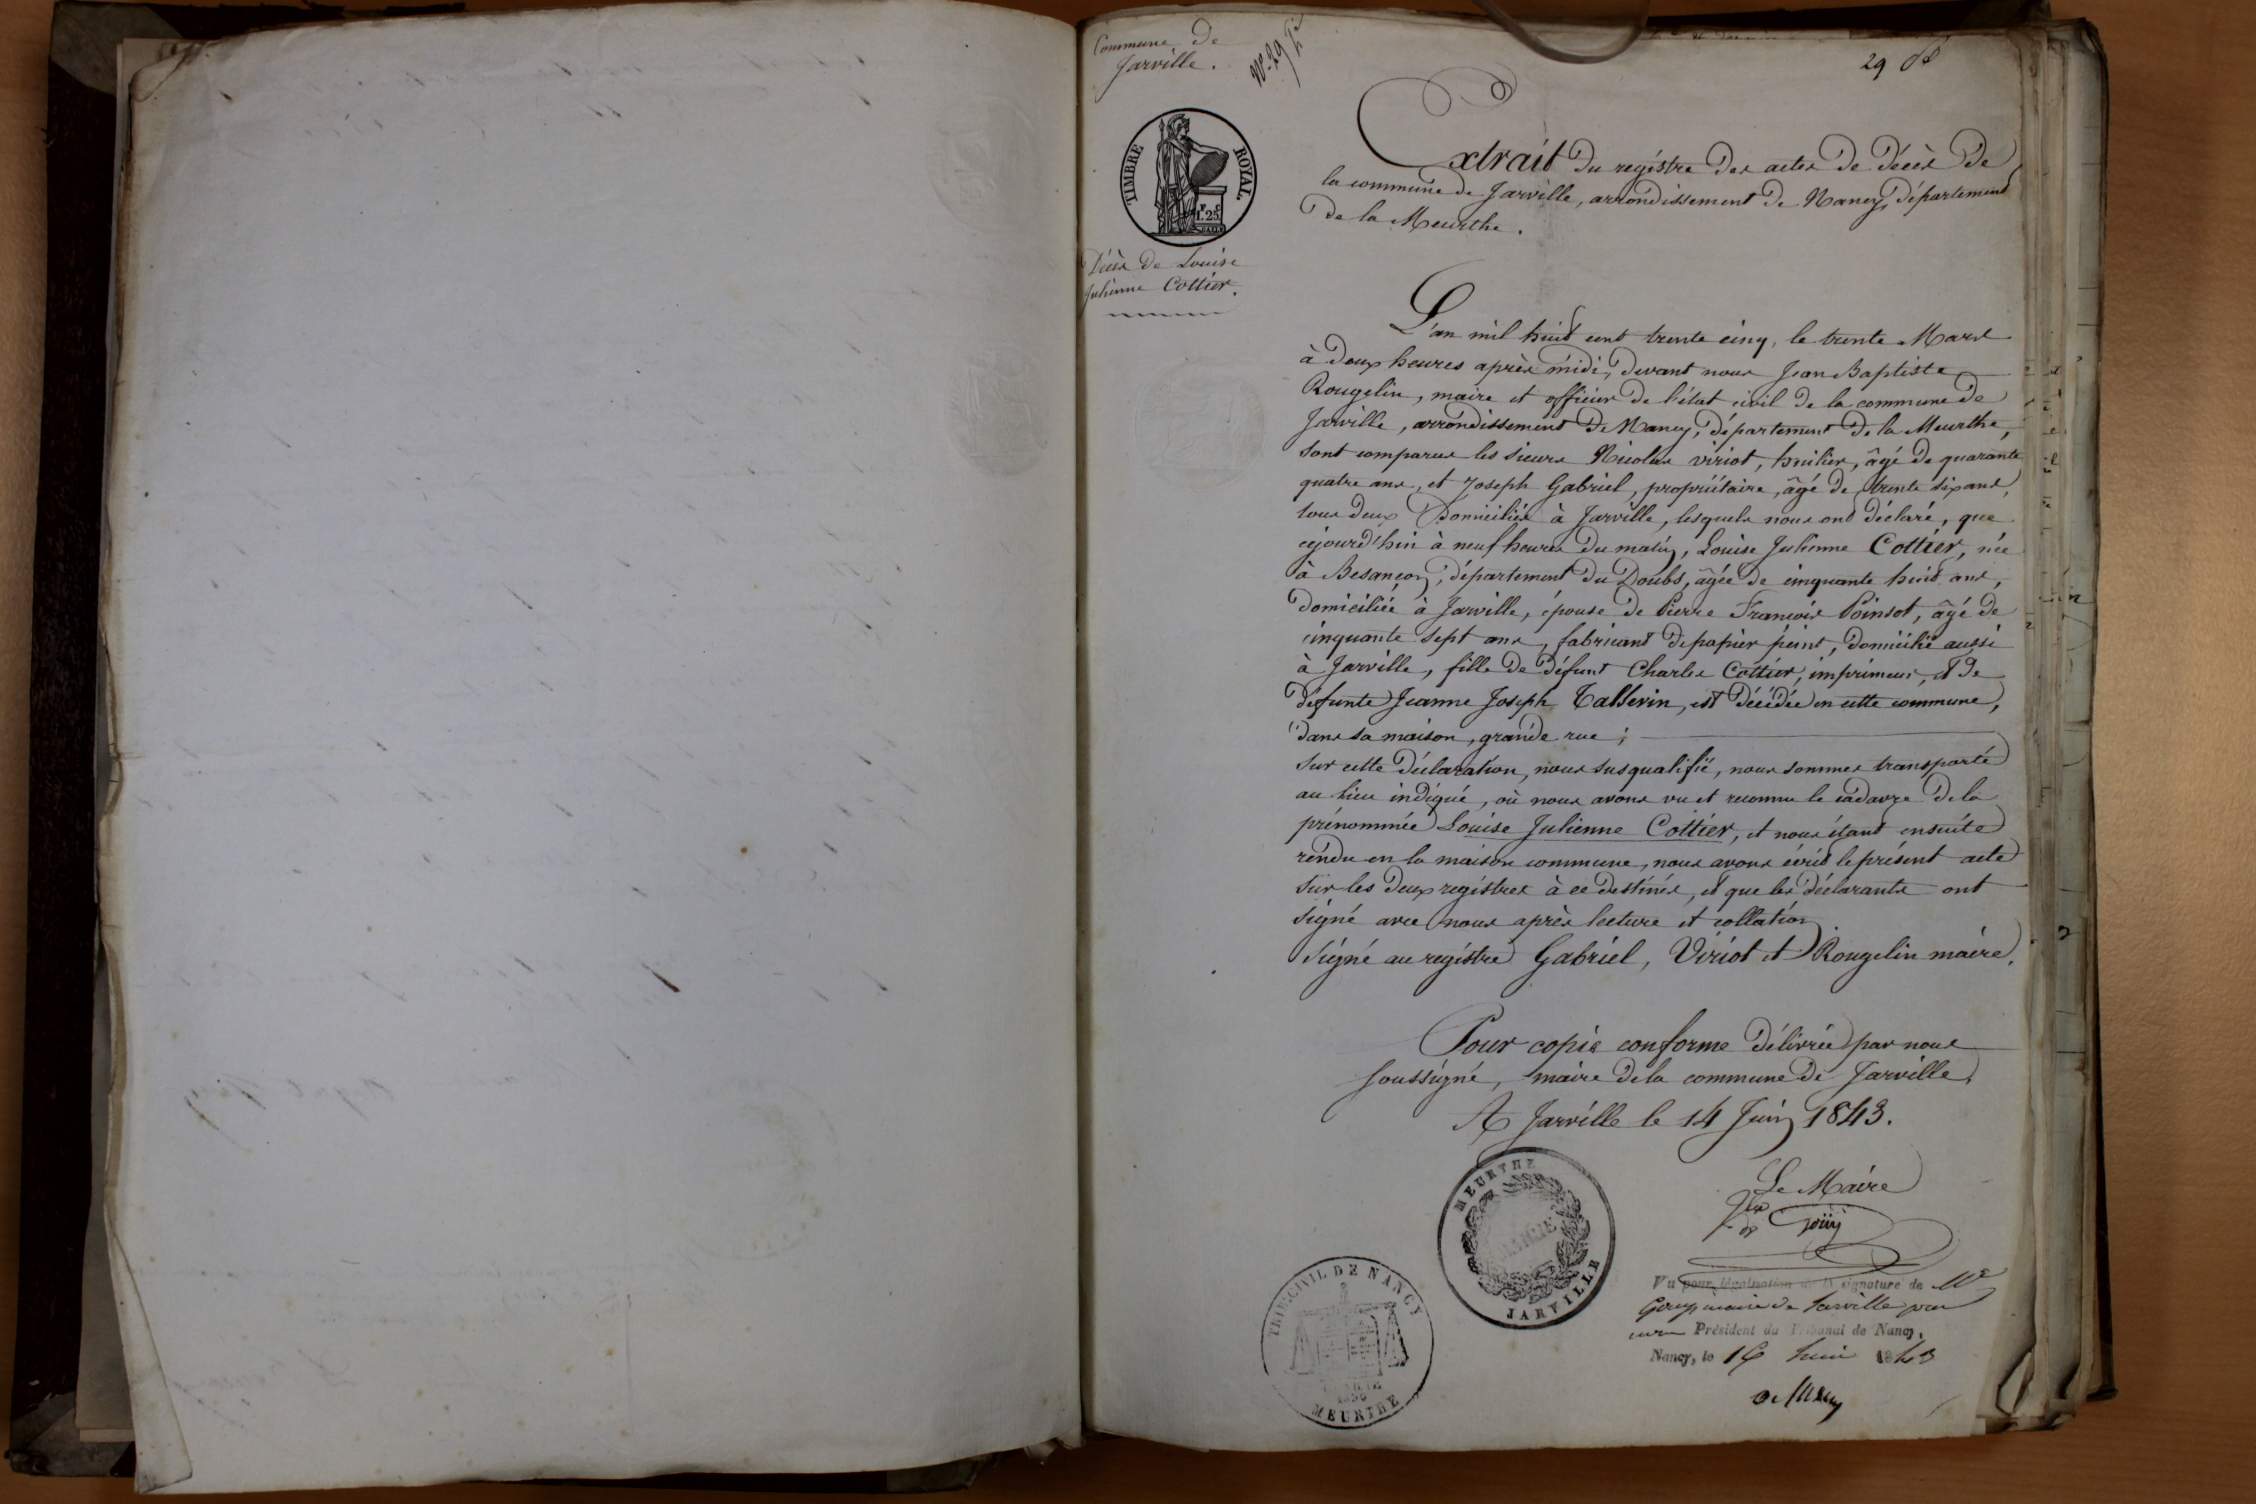 Commune de
Jarville.
N° 29
29
TIMBRE ROYAL
1F 25
Décès de Louise
Julienne Cottier.
Extrait du régistre des actes de décès de
la commune de Jarville, arrondissement de Nancy, département
de la Meurthe.
L'an mil huit cent trente cinq, le trente Mars
à deux heures après midi, devant nous Jean Baptiste
Rougelin, maire et officier de l'état civil de la commune de
Jarville, arrondissement de Nancy, département de la Meurthe,
sont comparus les sieurs Nicolas Viriot, huilier, âgé de quarante
quatre ans, et Joseph Gabriel, propriétaire, âgé de trente six ans,
tous deux domiciliés à Jarville, lesquels nous ont déclaré, que
cejourd'hui à neuf heures du matin, Louise Julienne Cottier, née
à Besançon, département du Doubs, âgée de cinquante huit ans,
domiciliée à Jarville, épouse de Pierre François Poinsot, âgé de
cinquante sept ans, fabricant de papier peint, domicilié aussi
à Jarville, fille de défunt Charles Cottier, imprimeur, et de
défunte Jeanne Joseph Tallerin, est décédée en cette commune,
dans sa maison, grande rue;
Sur cette déclaration, nous susqualifié, nous sommes transporté
au lieu indiqué, où nous avons vu et reconnu le cadavre de la
prénommée Louise Julienne Cottier, et nous étant ensuite
rendu en la maison commune, nous avons écrit le présent acte
sur les deux régistres à ce destinés, et que les déclarants ont
signé avec nous après lecture et collation
Signé au régistre Gabriel, Viriot et Rougelin maire.
Pour copie conforme délivrée par nous
soussigné, maire de la commune de Jarville,
A Jarville le 14 Juin 1843.
Le Maire
Goüy
MEURTHE
MAIRIE
JARVILLE
TRIB. CIVIL DE NANCY
MEURTHE
Vu pour légalisation de la signature de Mr
Gouy maire de Jarville par
nous Président du Tribunal de Nancy,
Nancy, le 16 Juin 1843